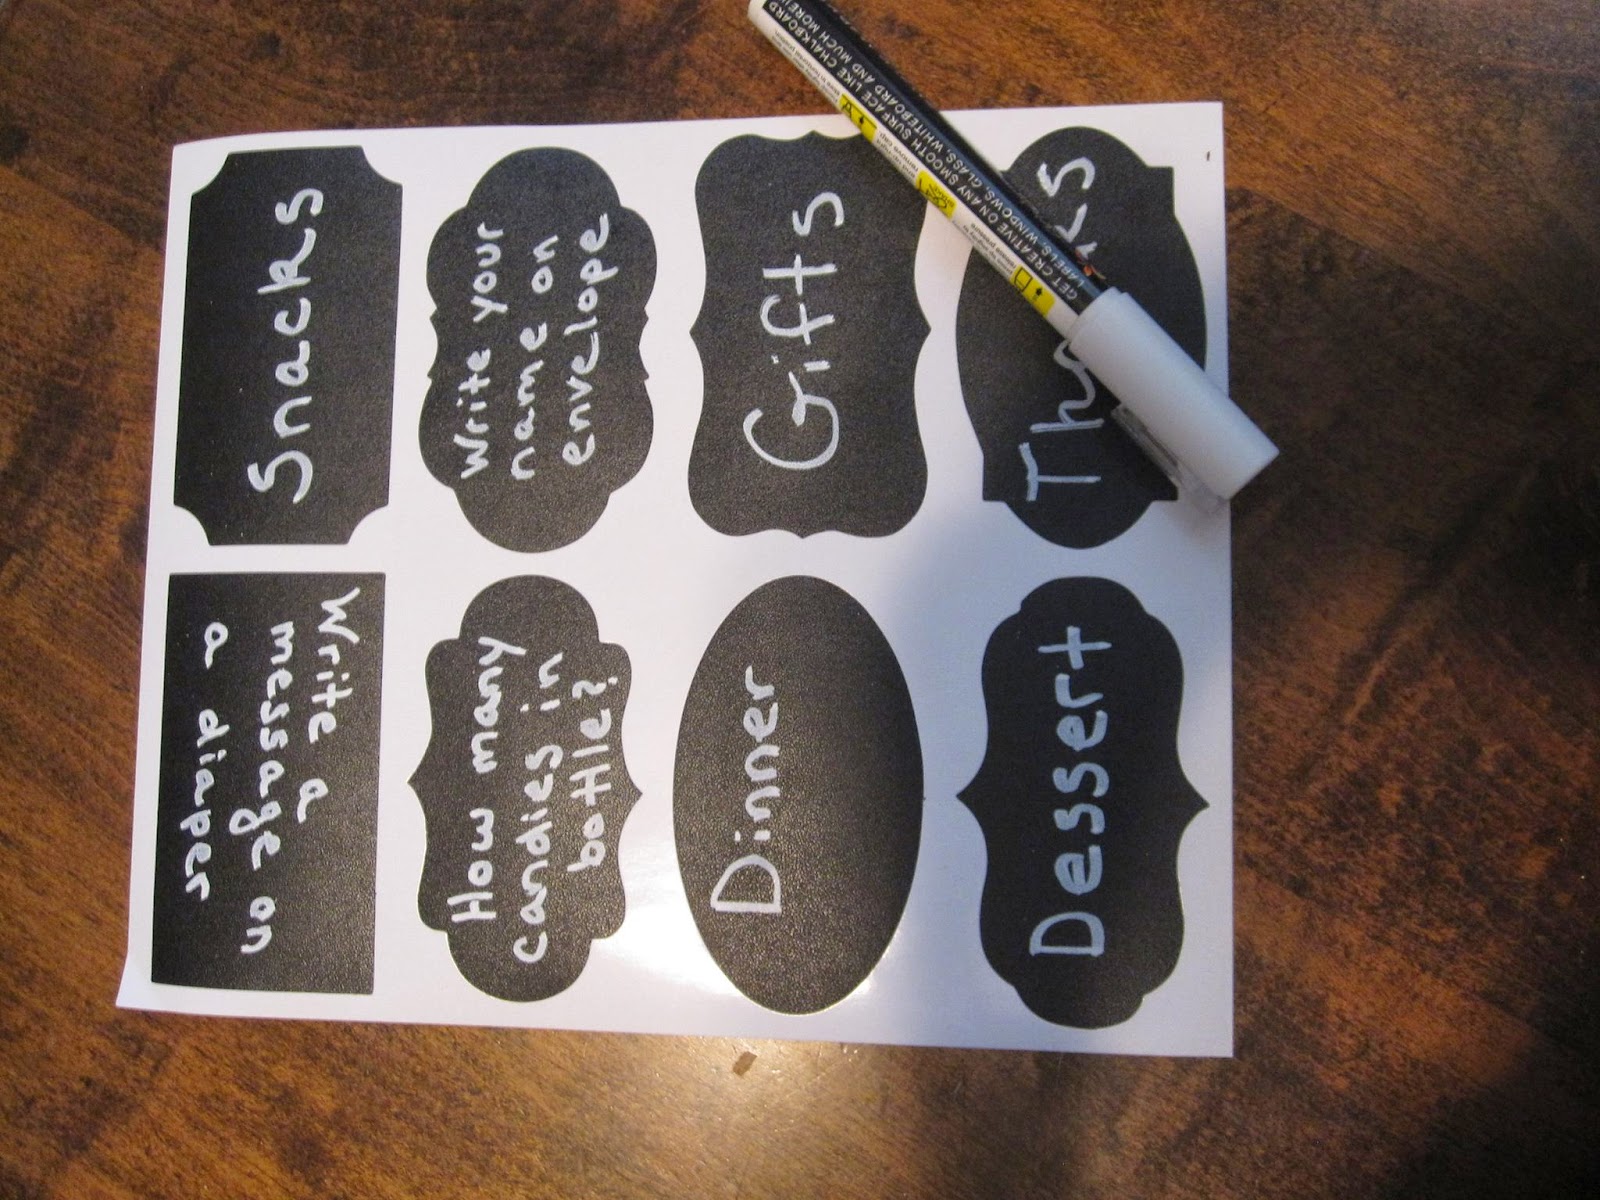 Write a
message on
a diaper
Snacks
How many
candies in
bottle?
Write your
name on
envelope
Dinner
Gifts
Dessert
Thanks
GET CREATIVE ON ANY SMOOTH SURFACE LIKE CHALKBOARD
LABELS, WINDOWS, GLASS, WHITEBOARD AND MUCH MORE!